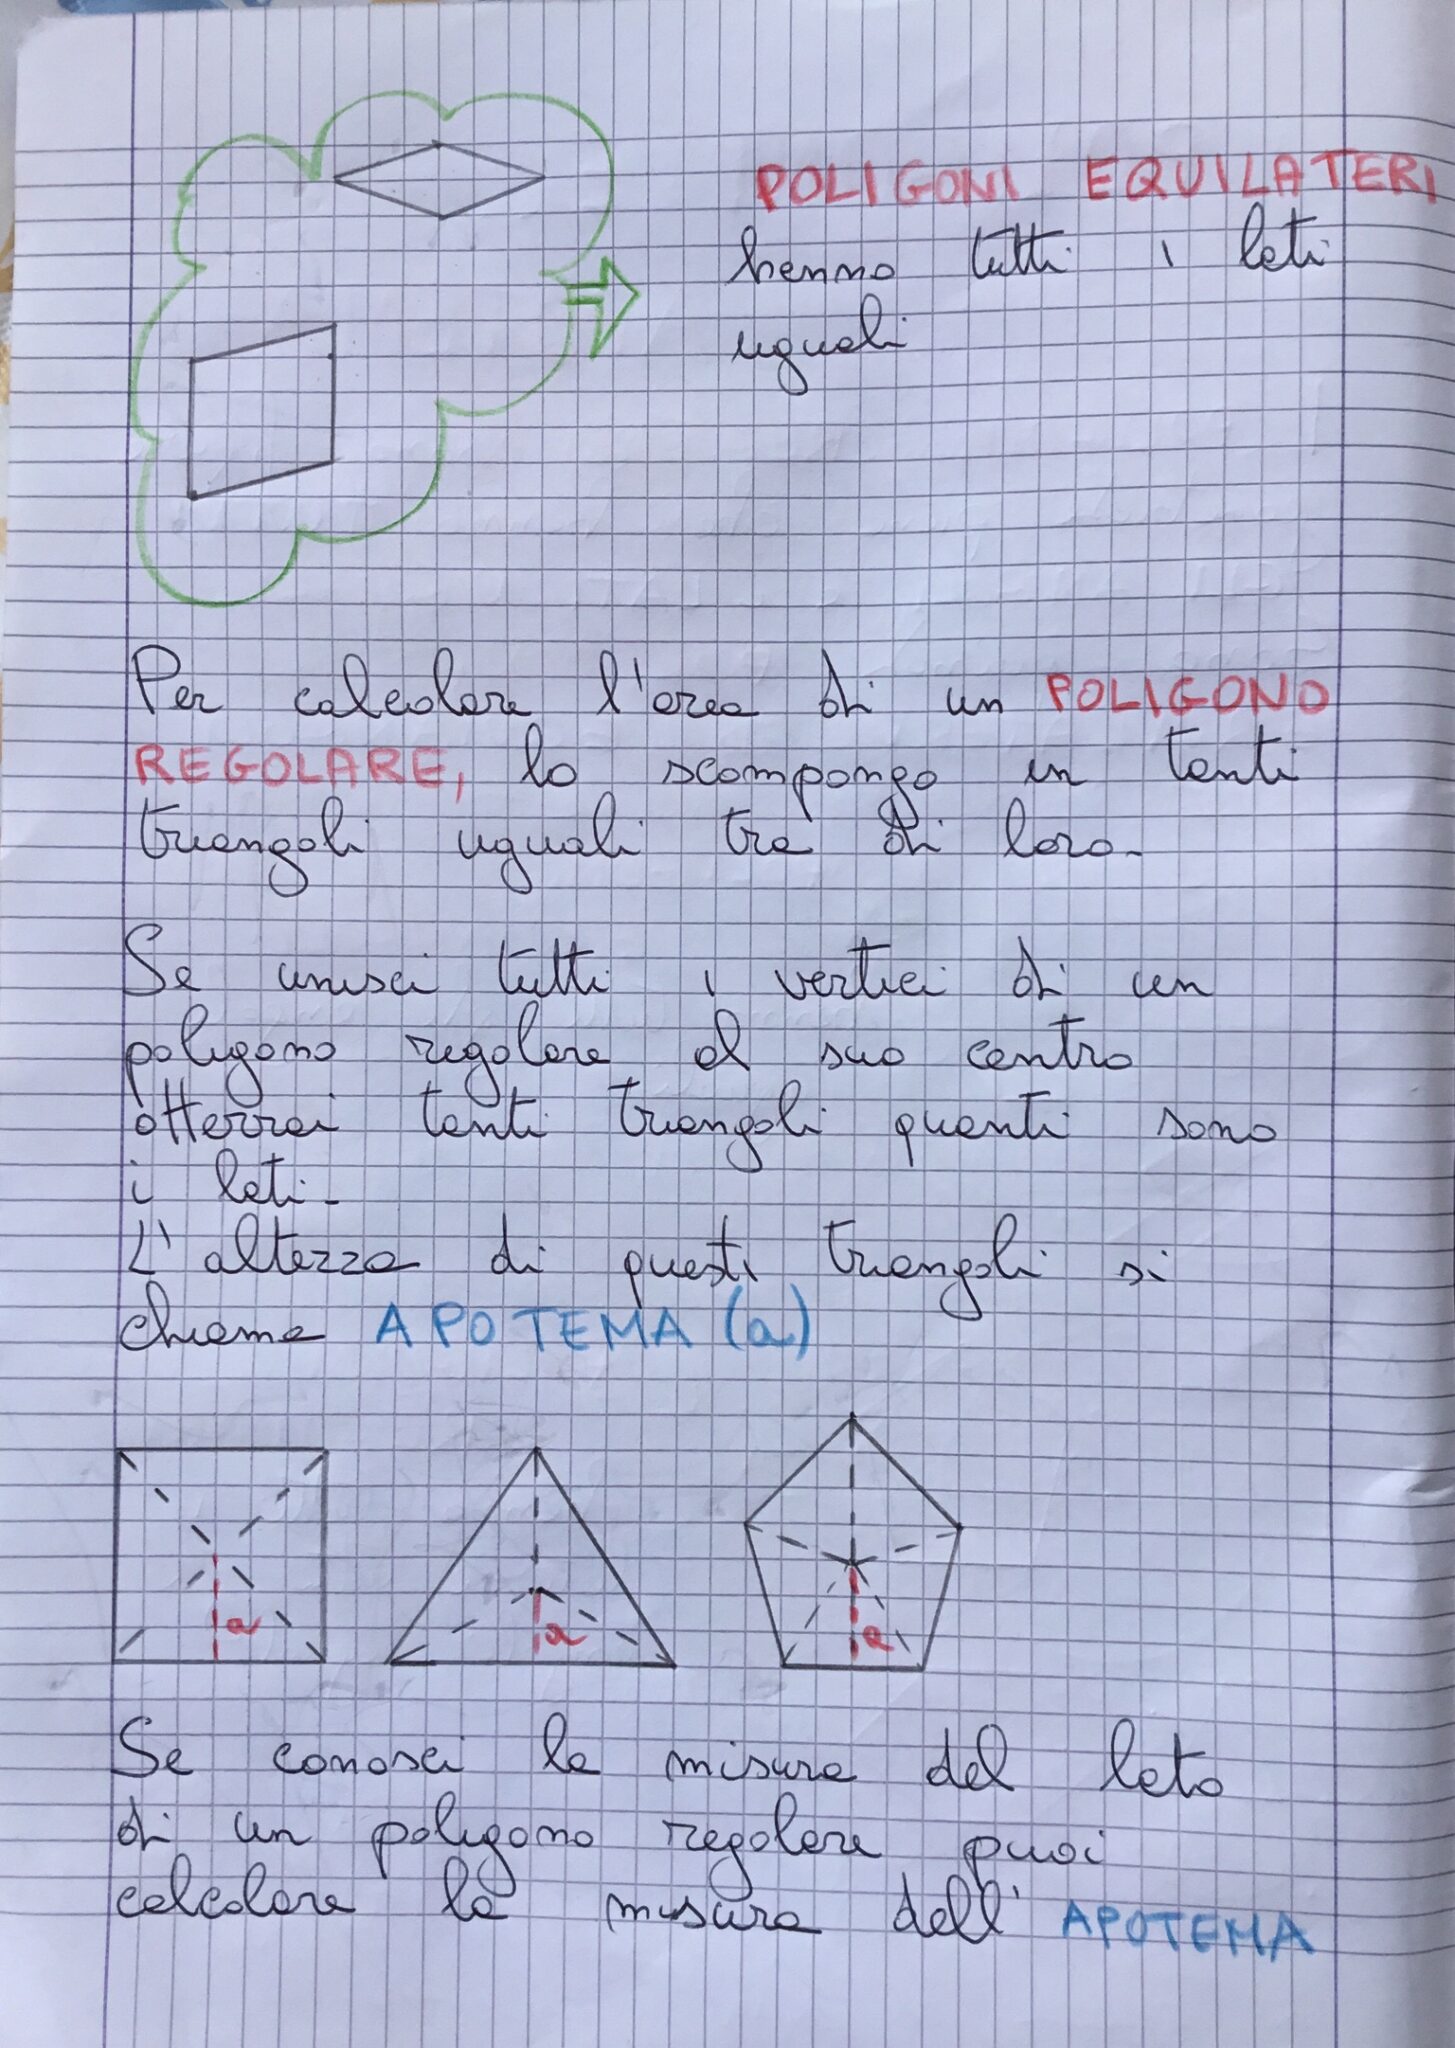 POLIGONI EQUILATERI
hanno tutti i lati
uguali
Per calcolare l'area di un POLIGONO
REGOLARE, lo scompongo in tanti
triangoli uguali tra di loro.
Se unisci tutti i vertici di un
poligono regolare al suo centro
otterrai tanti triangoli quanti sono
i lati.
L'altezza di questi triangoli si
chiama APOTEMA (a)
a
a
a
Se conosci la misura del lato
di un poligono regolare puoi
calcolare la misura dell'APOTEMA